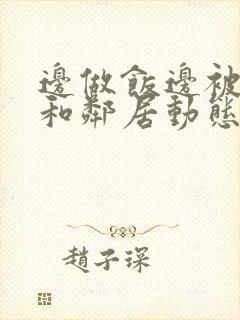 邊做飯邊被
和鄰居動態
趙子琛